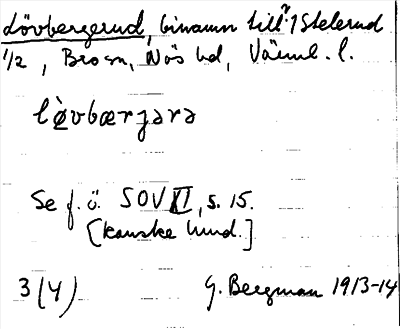 Lövbergerud, binamn till 1 Stelerud
1/2, Bro sn, Näs hd, Värml. l.
lòvbærjərə
Se f. ö. SOV XI, s. 15.
[kanske lund.]
3 (4) G. Bergman 1913-14